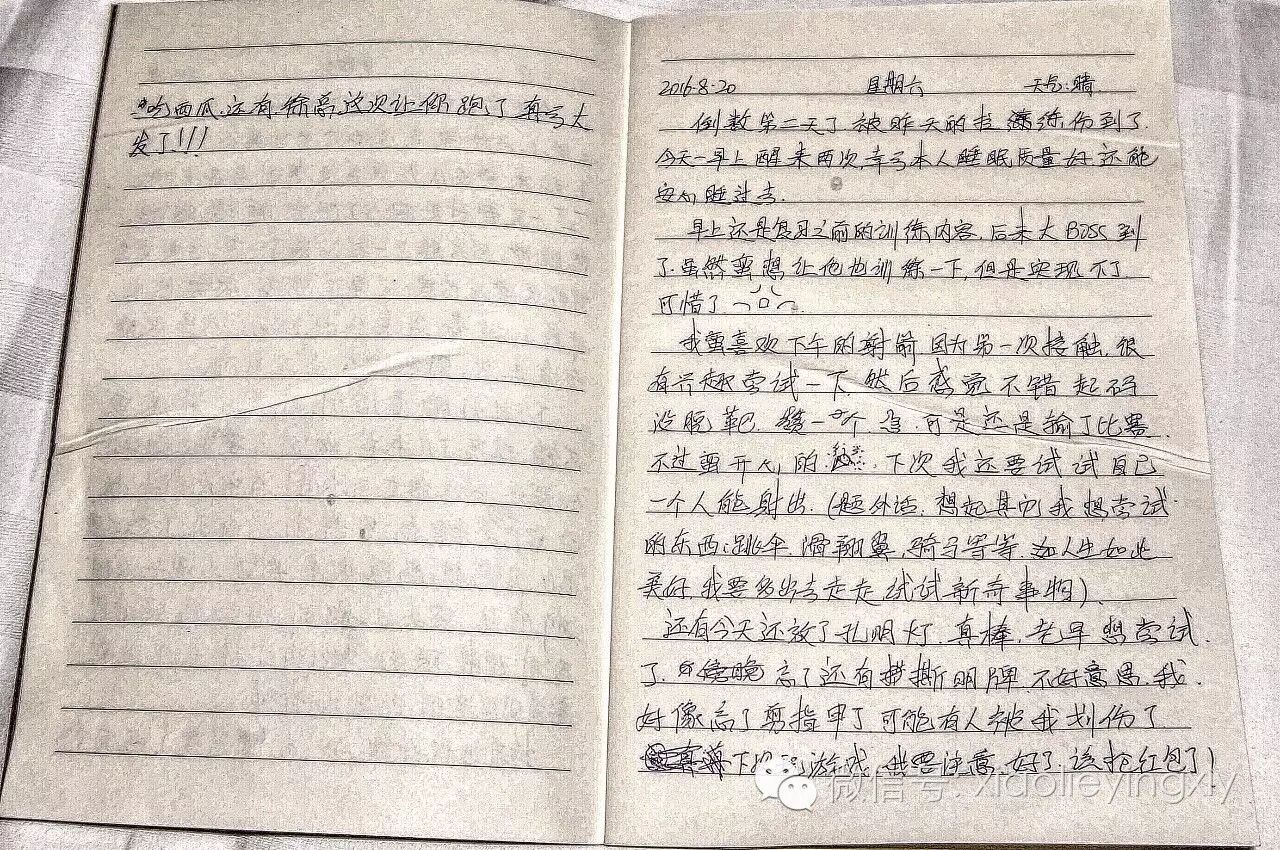 吃西瓜.还有徐亮这次让你跑了真亏大
发了!!!
2016.8.20 星期六 天气:晴
倒数第二天了被昨天的拉练伤到了
今天一早上醒来两次,幸亏本人睡眠质量好还能
安心睡过去.
早上还是复习之前的训练内容.后来大Boss到
了.虽然蛮想让他也训练一下,但是实现不了
可惜了
我蛮喜欢下午的射箭因为第一次接触.很
有兴趣尝试一下.然后感觉不错起码
没脱靶.可是还是输了比赛.
不过蛮开心的.下次我还要试试自己
一个人能射出.(题外话:想起其它我想尝试
的东西:跳伞.滑翔翼.骑马等等.人生如此
美好.我要多出去走走试试新奇事物).
还有今天还放了孔明灯.真棒.老早想尝试.
了.忘了还有撕明牌.不好意思.我.
好像忘了剪指甲了可能有人被我划伤了
下次玩游戏.我要注意.好了.该抢红包了!
微信号: xidalieyingxly